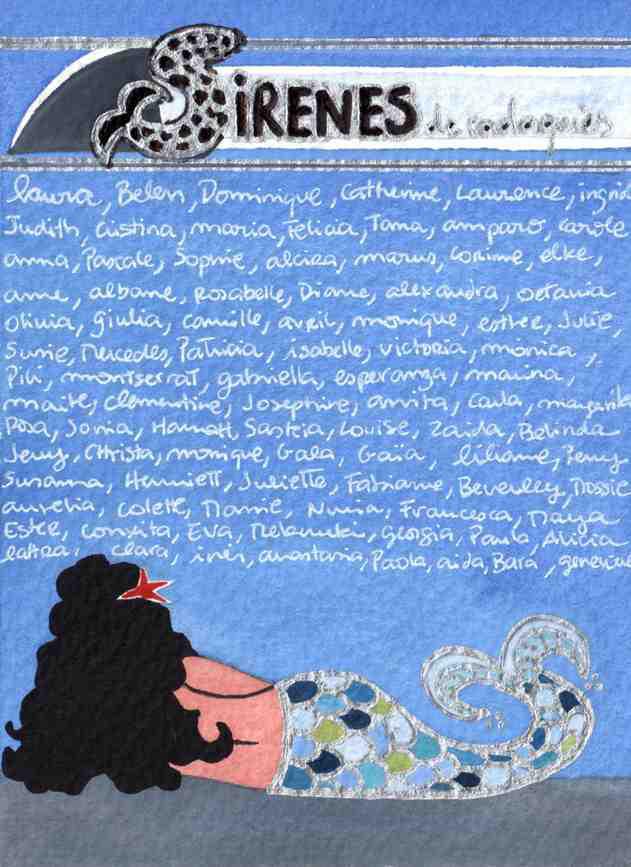 SIRENES de cadaqués
laura, Belen, Dominique, Catherine, Laurence, ingrid
Judith, cristina, maria, Felicia, Tania, amparo, carole
anna, Pascale, Sophie, alcira, marus, corinne, elke,
anne, albane, Rosabelle, Diane, alexandra, octavia
Olivia, giulia, camille, avril, monique, esther, Julie,
Susie, mercedes, Patricia, isabelle, victoria, mònica,
Pili, montserrat, gabriella, esperanza, marina,
maite, Clementine, Josephine, anvita, carla, margarita
Rosa, Sonia, Hannah, Saskia, Louise, Zaida, Belinda
Jenny, Christa, monique, Gala, Gaïa, liliane, Penny
Susanna, Henriett, Juliette, Fabianne, Beverley, Rossie
aurelia, Colette, Mamie, Nuria, Francesca, Maya
Ester, conxita, Eva, Georgia, Paula, Alicia
clara, inés, anastasia, Paola, aida, Bara, genevieve